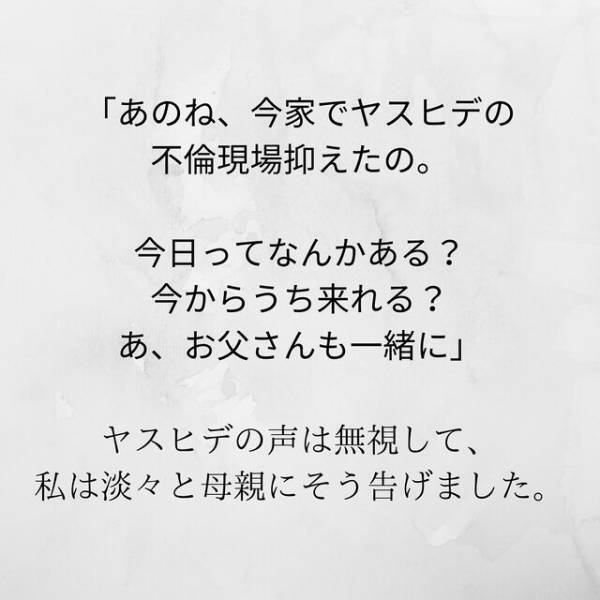 「あのね、今家でヤスヒデの
不倫現場抑えたの。
今日ってなんかある？
今からうち来れる？
あ、お父さんも一緒に」
ヤスヒデの声は無視して、
私は淡々と母親にそう告げました。